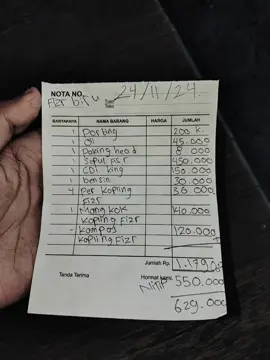 NOTA NO.
24/11/24.
FIZR biru
BANYAKNYA NAMA BARANG HARGA JUMLAH
1 Porting 200 k.
1 Oli 45.000
1 Paking head 8 000
1 Sepul FIZR 450.000
1 CDI king 150.000
1 bensin 30.000
4 Per kopling 36 000
FIZR
1 Mangkok 140.000
kopling FIZR
- kampas 120.000
kopling FIZR
Jumlah Rp. 1.179.000
Tanda Terima Hormat kami,
NITIP 550.000
629.000